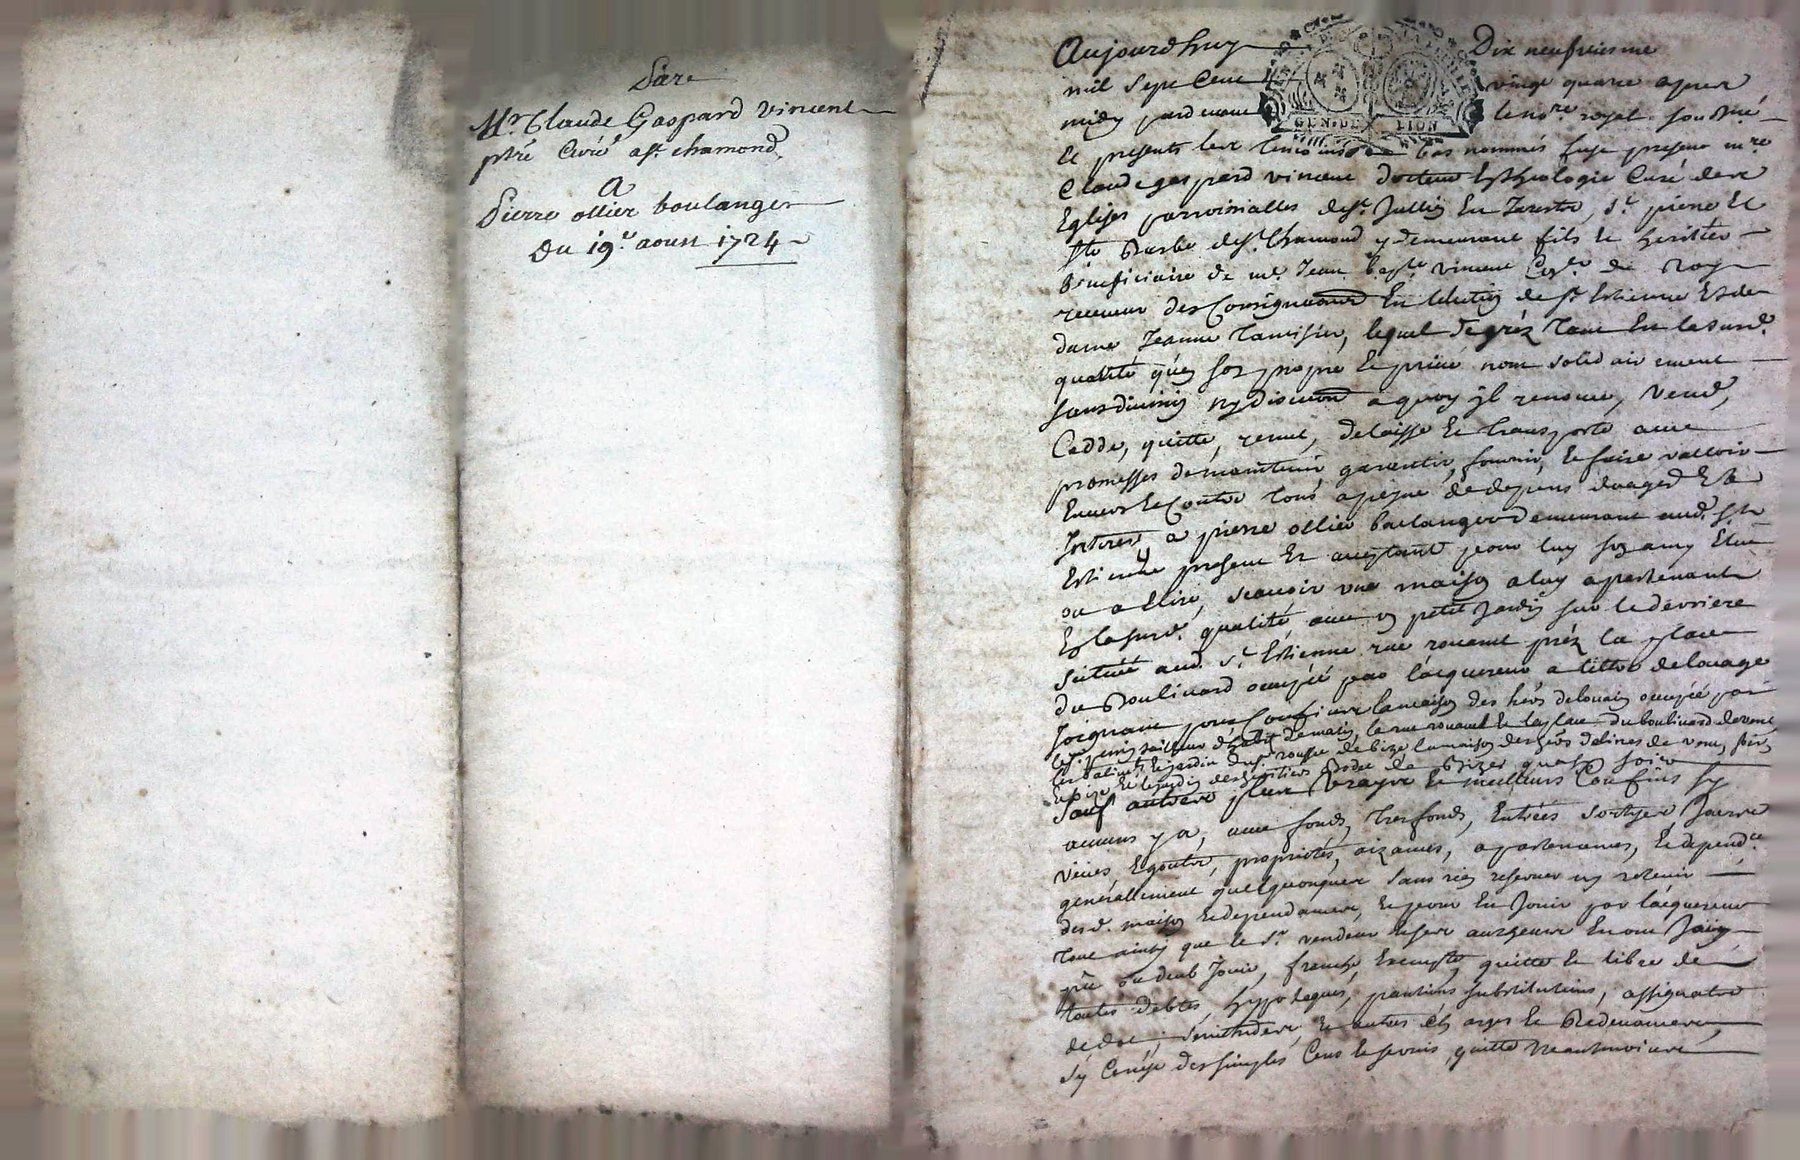 Mr Claude Gaspard Vincent
ptre Curé a St chamond
A
Pierre ollier boulanger
Du 19e aoust 1724
Aujourdhuy Dix neufviesme
mil sept Cent vingt quatre apres
midy pardevant le nore royal soubné
Et presents les temoins bas nommés fust present mre
Claude gaspard vincent docteur En Theologie Curé des
Eglises parroissialles de St Jullien En Jarestz, St pierre Et
Ste Barbe de St Chamond y demeurant fils Et heritier
beneficiaire de me Jean bapte vincent Conser du Roy
receveur des Consignations En lelection de St Estienne Et de
dame Jeanne Tamisier, lequel de gréz tant En lasusde
qualité qu'en son propre Et privé nom solidairement
sans division ny discution a quoy jl renonce, Vend,
Cedde, quitte, remet, delaisse Et transporte avec
promesses de maintenir garentir, fournir, Et faire valloir
Envers Et Contre tous a peyne de depens domages Et
Interests a pierre ollier boulanger demeurant aud. St
Estienne present Et acceptant pour luy son amy Elu
ou a Elire, scavoir une maison a luy apartenant
En lasusd. qualité avec un petit jardin sur le derriere
scituée aud. St Estienne rue rouanne préz la place
du Boulivard occupée par lacquereur a tiltre de louage
joignant pour Confins la maison des hers occupée par
tailleur d'habit de matin, la rue rouanne Et la place du boulivard de vent
le jardin du sr rousse de bize la maison des hers de vent,
Et le jardin des heritiers de Bize quasy soir
Sauf autres plus vrayes Et meilleurs Confins sy
aucuns y a, avec fonds, tresfonds, Entrées sorties, jours
veües, Egouts, proprietés, aizances, apartenances, Et dependces
generallement quelquonques sans rien reserver ny retenir
desd. maison Et dependances, Et pour En Jouir par lacquereur
tout ainsy que le sr vendeur Et ses autheurs En ont Jouy
pû ou deub Jouir, franche, Exempte, quitte Et libre de
toutes debtes, hypoteques, pantions substitutions, assignations
de dot, servitudes, Et autres charges Et Redevances,
sy Ce n'est des simples Cens Et servis, quitte neantmoins
GEN. DE LION